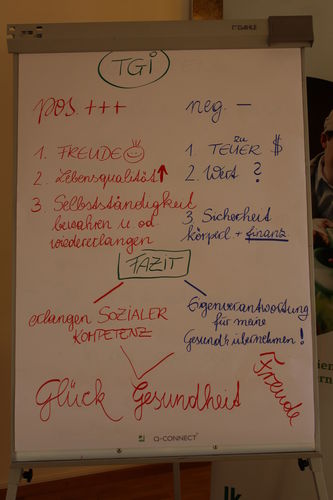 DAHLE
TGi
pos. +++
neg. —
1. FREUDE
2. Lebensqualität
3. Selbstständigkeit
bewahren u. od
wiedererlangen
1. zu TEUER $
2. Wert ?
3. Sicherheit
körperl + finanz
FAZIT
erlangen SOZIALER
KOMPETENZ
Eigenverantwortung
für meine
Gesundh. übernehmen!
Glück Gesundheit
Freude
a-CONNECT